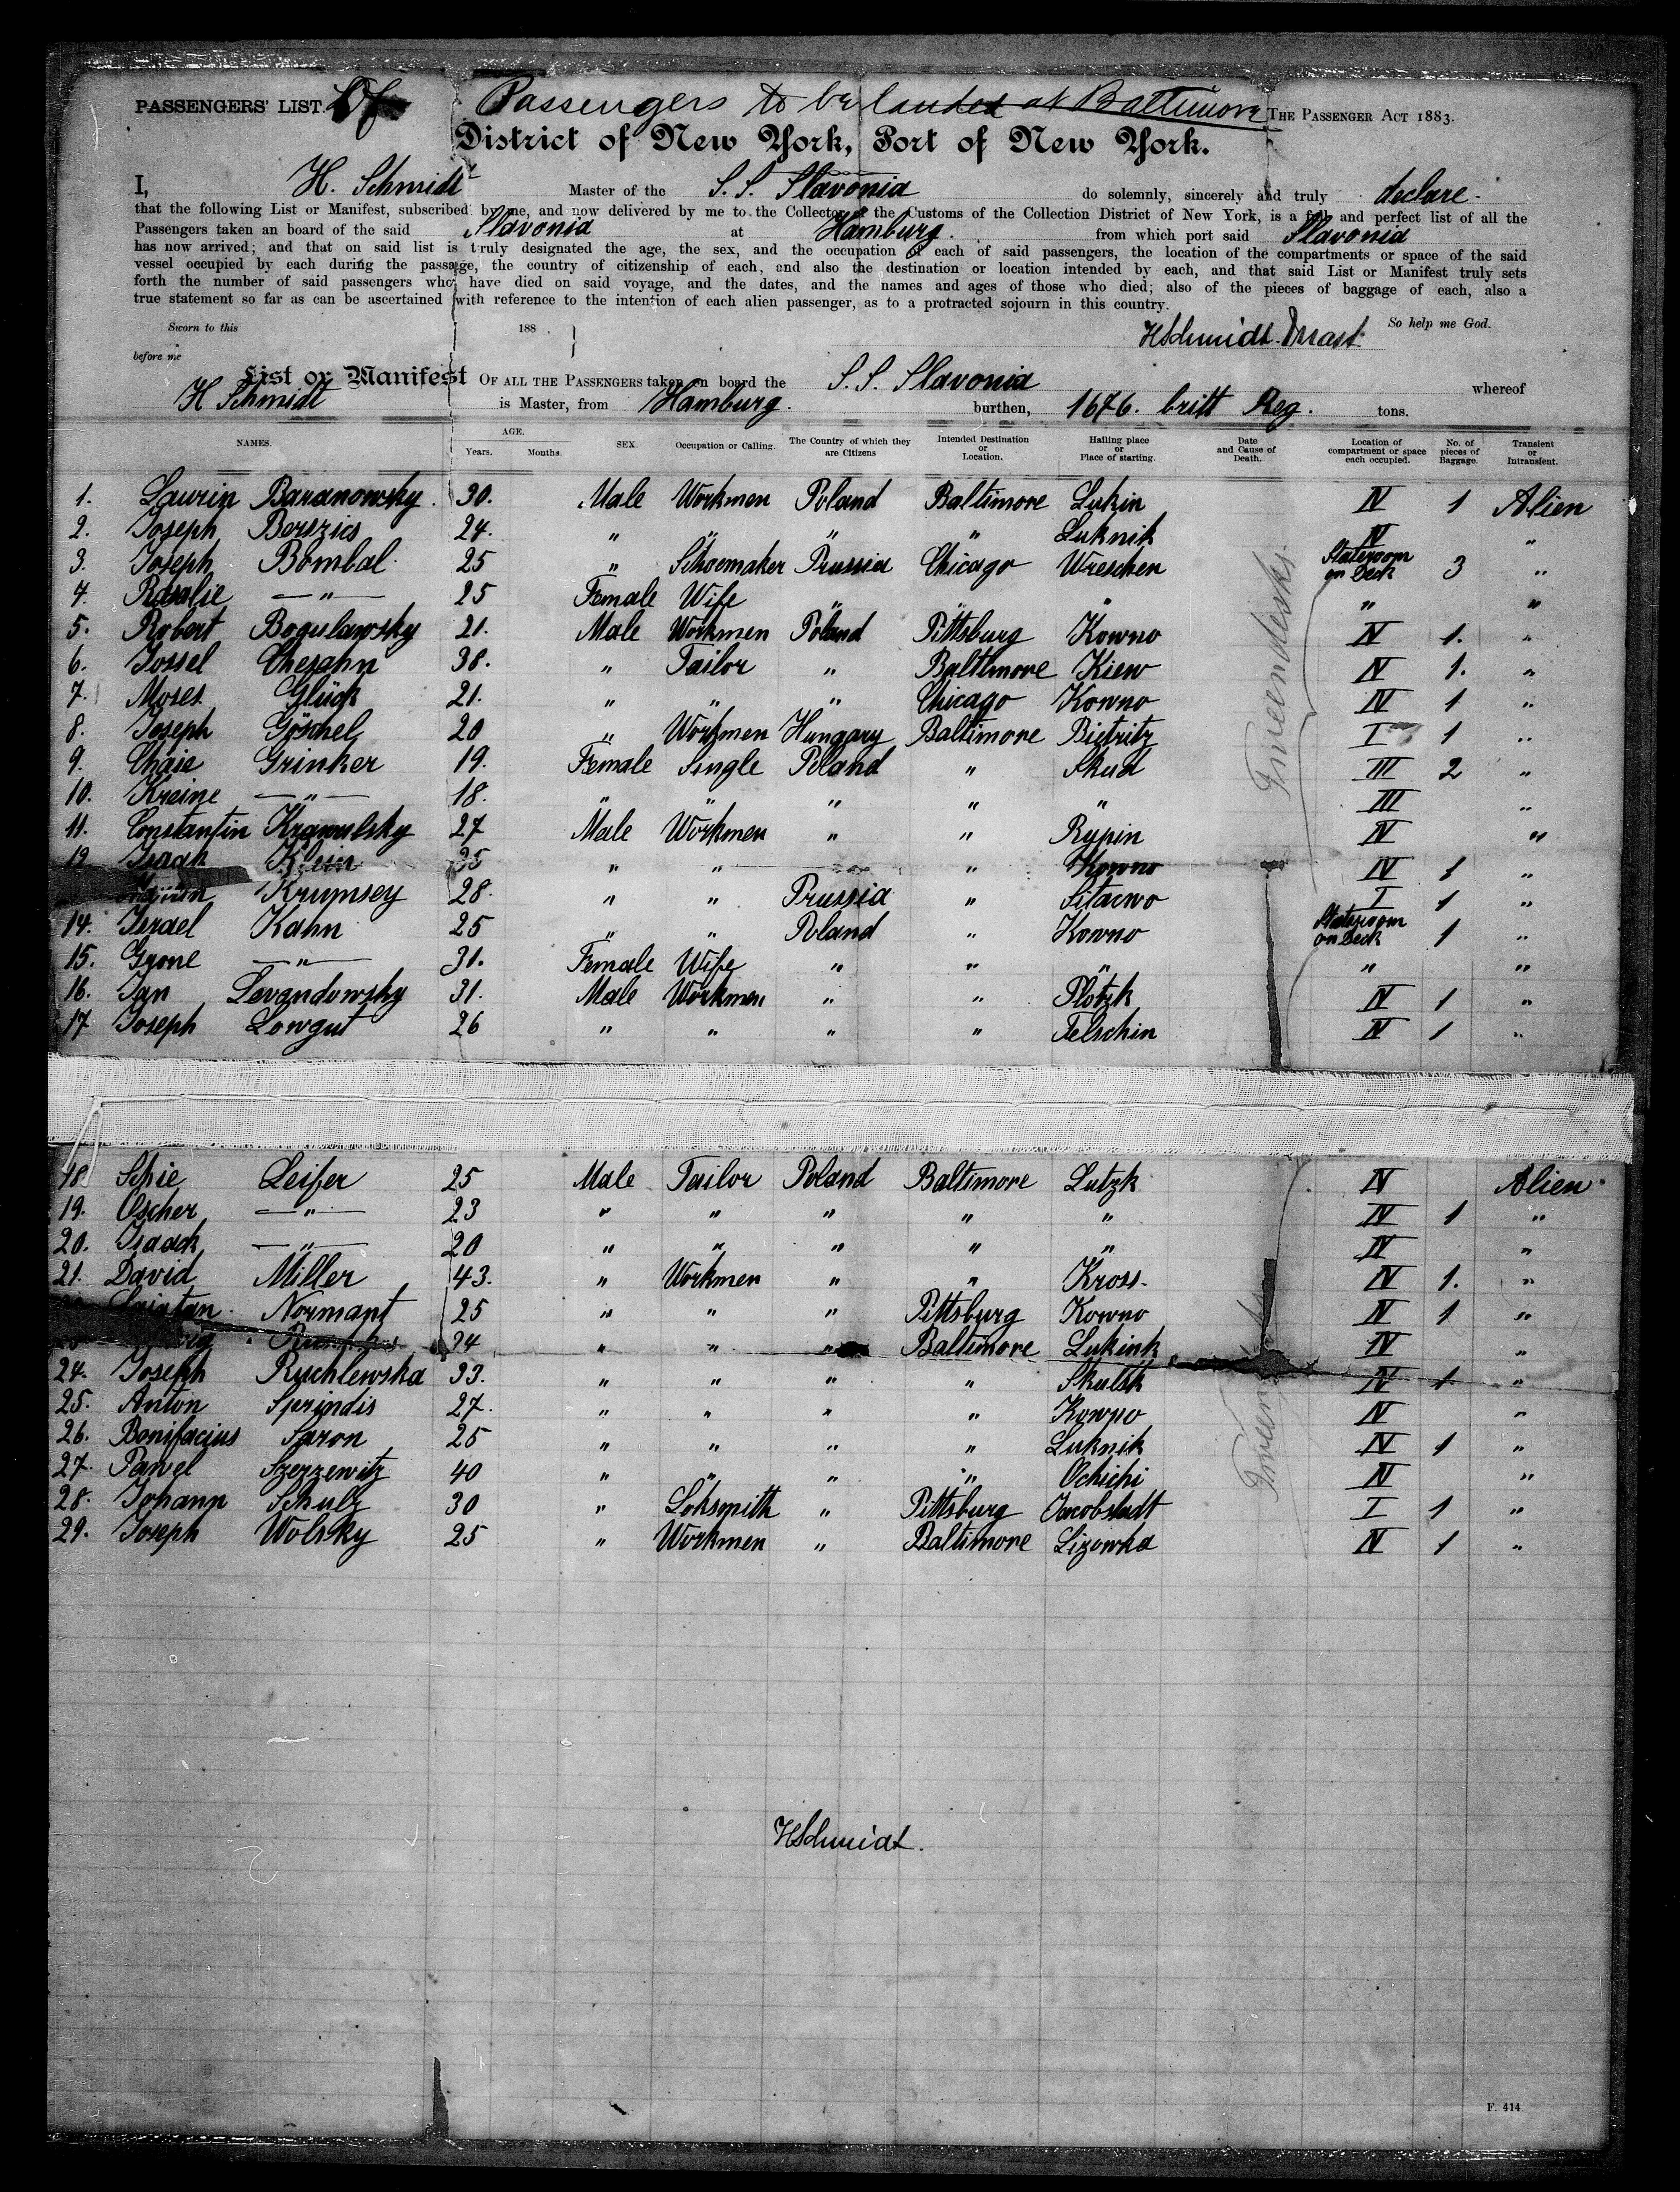 PASSENGERS' LIST. Of Passengers to be landed at Baltimore THE PASSENGER ACT 1883.
District of New York, Port of New York.
I, H. Schmidt Master of the S. S. Slavonia do solemnly, sincerely and truly declare
that the following List or Manifest, subscribed by me, and now delivered by me to the Collector of the Customs of the Collection District of New York, is a full and perfect list of all the
Passengers taken an board of the said Slavonia at Hamburg. from which port said Slavonia
has now arrived; and that on said list is truly designated the age, the sex, and the occupation of each of said passengers, the location of the compartments or space of the said
vessel occupied by each during the passage, the country of citizenship of each, and also the destination or location intended by each, and that said List or Manifest truly sets
forth the number of said passengers who have died on said voyage, and the dates, and the names and ages of those who died; also of the pieces of baggage of each, also a
true statement so far as can be ascertained with reference to the intention of each alien passenger, as to a protracted sojourn in this country.
Sworn to this 188 . So help me God.
HSchmidt.
before me
List or Manifest OF ALL THE PASSENGERS taken on board the S. S. Slavonia whereof
H Schmidt is Master, from Hamburg. burthen, 1676. britt Reg. tons.
NAMES. AGE. Years. Months. SEX. Occupation or Calling. The Country of which they are Citizens Intended Destination or Location. Hailing place or Place of starting. Date and Cause of Death. Location of compartment or space each occupied. No. of pieces of Baggage. Transient or Intransient.
1. Laurin Baranowsky. 30. Male Workmen Poland Baltimore Lukin IV 1 Alien
2. Joseph Berszics 24. " " " " Luknik IV "
3. Joseph Bombal 25 " Schoemaker Prussia Chicago Wreschen Stateroom on Deck 3 "
4. Rosalie — " — 25 Female Wife " " " " "
5. Robert Bogulawsky 21. Male Workmen Poland Pittsburg Kowno IV 1. "
6. Jossel Chesahn 38. " Tailor " Baltimore Kiew IV 1. "
7. Moses Glück 21. " " " Chicago Kowno IV 1 "
8. Joseph Göschel 20 " Workmen Hungary Baltimore Bistritz I 1 "
9. Chaie Grinker 19. Female Single Poland " Skud III 2 "
10. Kreine — " — 18. " " " " " III "
11. Constantin Krawulsky 27 Male Workmen " " Rypin IV "
12 Isaak Klein 35 " " " " Kowno IV 1 "
Krumsey 28. " " Prussia " Sitarwo I 1 "
14. Israel Kahn 25 " " Poland " Kowno Stateroom on Deck 1 "
15. Gyone — " — 31. Female Wife " " " " "
16. Jan Levandowsky 31. Male Workmen " " Plotzk IV 1 "
17 Joseph Lowgut 26 " " " " Telschin IV 1 "
18. Schie Leifer 25 Male Tailor Poland Baltimore Lutzk IV Alien
19. Oscher — " — 23 " " " " " IV 1 "
20. Isaack — " — 20 " " " " " IV "
21. David Miller 43. " Workmen " " Kross. IV 1. "
Normant 25 " " " Pittsburg Kowno IV 1 "
24 " " " Baltimore Lukink IV "
24. Joseph Ruchlewska 33. " " " " Skulsk IV 1 "
25. Anton Sprindis 27. " " " " Kowno IV "
26. Bonifacius Saron 25 " " " " Luknik IV 1 "
27. Pawel Szerzewitz 40 " " " " Ochichi IV "
28. Johann Schulz 30 " Loksmith " Pittsburg Jacobstadt I 1 "
29. Joseph Wolsky 25 " Workmen " Baltimore Lizowka IV 1 "
Tweendecks.
HSchmidt.
F. 414